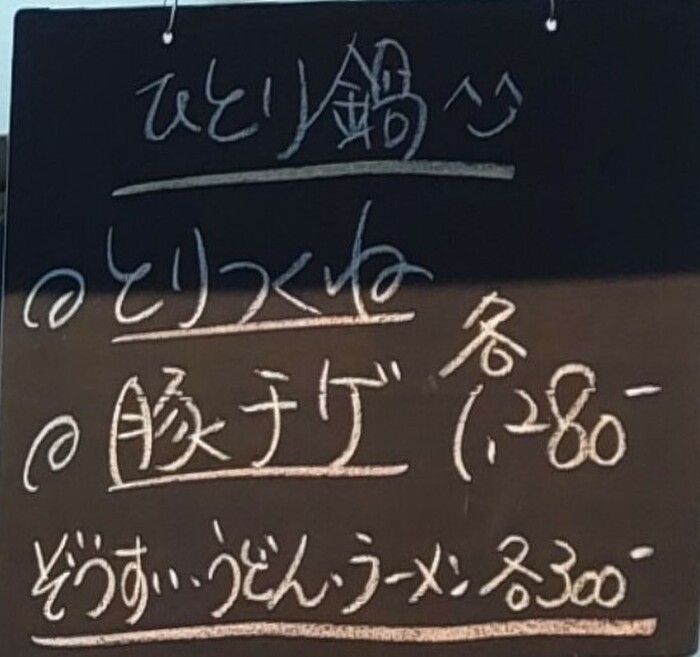 ひとり鍋 ^^
とりつくね
豚チゲ 各 1,280-
ぞうすい・うどん・ラーメン 各300-